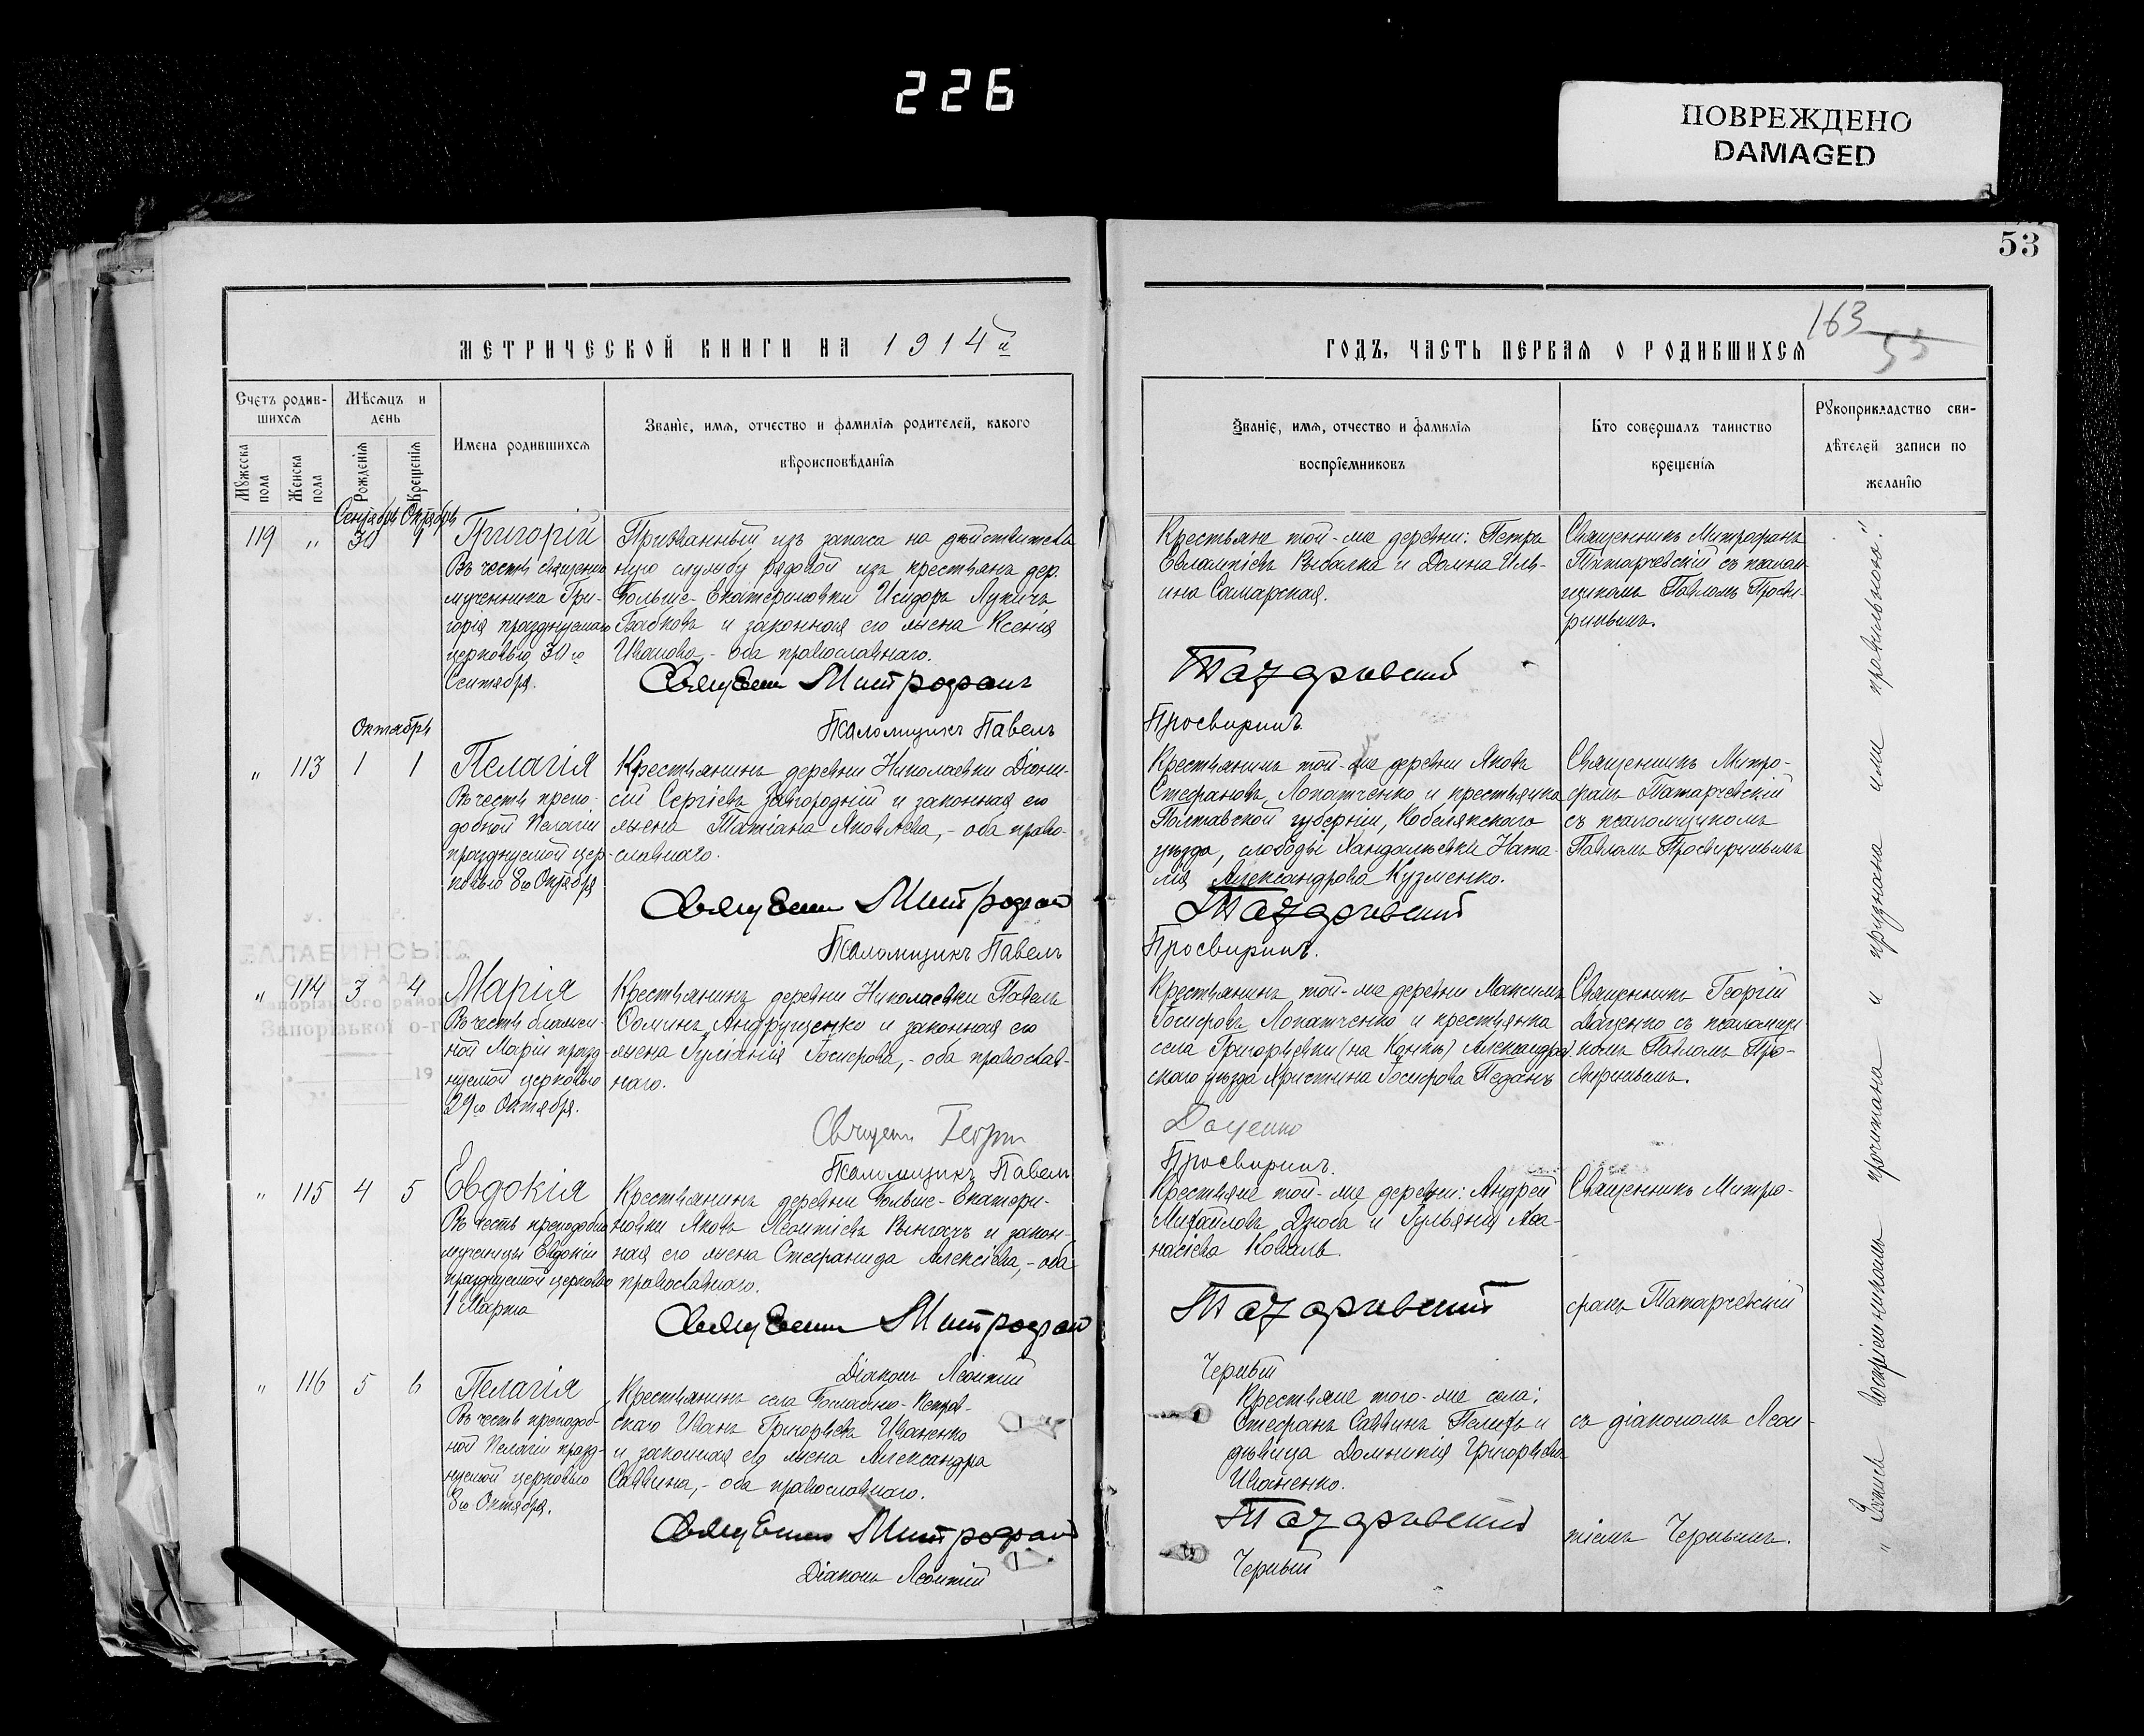 226
ПОВРЕЖДЕНО
DAMAGED
53
МЕТРИЧЕСКОЙ КНИГИ НА 1914й
ГОДЪ, ЧАСТЬ ПЕРВАЯ О РОДИВШИХСЯ
163
53
Счетъ родив-
шихся
Мѣсяцъ и
день
Мужеска пола
Женска пола
Рожденія
Крещенія
Имена родившихся
Званіе, имя, отчество и фамилія родителей, какого
вѣроисповѣданія
Званіе, имя, отчество и фамилія
воспріемниковъ
Кто совершалъ таинство
крещенія
Рукоприкладство сви-
дѣтелей записи по
желанію
Сентябрь Октябрь
119 " 30 1
Григорій
Въ честь священно
мученника Гри-
горія празднуемаго
церковью 30го
Сентября.
Призванный изъ запаса на действитель
ную службу рядовой изъ крестьянъ дер.
Больше-Екатериновки Исидоръ Лукичъ
Бабковъ и законная его жена Ксенія
Иванова,- оба православнаго.
Священн Митрофанъ
Псаломщикъ Павелъ
Крестьяне той-же деревни: Петръ
Евлампіевъ Рыбалка и Домна Иль-
ина Самарская.
Татаревскій
Просвиринъ.
Священникъ Митрофанъ
Татарчевскій съ псалом
щикомъ Павломъ Просви-
ринымъ.
Октябрь
" 113 1 1
Пелагія
Въ честь препо-
добной Пелагіи
празднуемой цер-
ковью 8го Октября
Крестьянинъ деревни Николаевки Діони-
сій Сергіевъ Завгородній и законная его
жена Татіана Яковлева,- оба право-
славнаго.
Священн Митрофан
Псаломщикъ Павелъ
Крестьянинъ той-же деревни Яковъ
Стефановъ Лопатченко и крестьянка
Полтавской губерніи, Кобелякского
уезда, слободы Хандальевки Ната-
лія Александрова Кузменко.
Татаревскій
Просвиринъ.
Священникъ Митро-
фанъ Татарчевскій
съ псаломщикомъ
Павломъ Просвиринымъ
" 114 3 4
Марія
Въ честь блажен-
ной Маріи празд-
нуемой церковью
29го Октября.
Крестьянинъ деревни Николаевки Павелъ
Фоминъ Андрущенко и законная его
жена Іуліанія Іосифова,- оба православ-
наго.
Священн Георгій
Псаломщикъ Павелъ
Крестьянинъ той-же деревни Максимъ
Іосифовъ Лопатченко и крестьянка
села Григорьевки (на Конкѣ) Александров.
скаго уезда Христина Іосифова Педанъ
Доценко
Просвиринъ.
Священникъ Георгій
Доценко съ псаломщи-
комъ Павломъ Про-
свиринымъ.
БАЛАБИНСЬКА
Запорізької о-
19
" 115 4 5
Евдокія
Въ честь преподобно
мученицы Евдокіи
празднуемой церковью
1 Марта
Крестьянинъ деревни Больше-Екатери-
новки Яковъ Леонтіевъ и закон-
ная его жена Стефанида Алексіева,- оба
православнаго.
Священн Митрофан
Діаконъ Леонтій
Крестьяне той-же деревни: Андрей
Михайловъ Дзюба и Іульянія Афа-
насіева Коваль.
Татаревскій
Черный
Священникъ Митро-
фанъ Татарчевскій
" 116 5 6
Пелагія
Въ честь преподоб-
ной Пелагіи празд-
нуемой церковью
8го Октября.
Крестьянинъ села
скаго Иванъ Григорьевъ Иваненко
и законная его жена Александра
Саввина,- оба православнаго.
Священн Митрофан
Діаконъ Леонтій
Крестьяне того-же села:
Стефанъ Саввинъ и
дѣвица Домникія Григорьева
Иваненко.
Татаревскій
Черный
съ діакономъ Леон-
тіемъ Чернымъ.
" Запись воспріемникомъ прочитана и признана ими правильною."